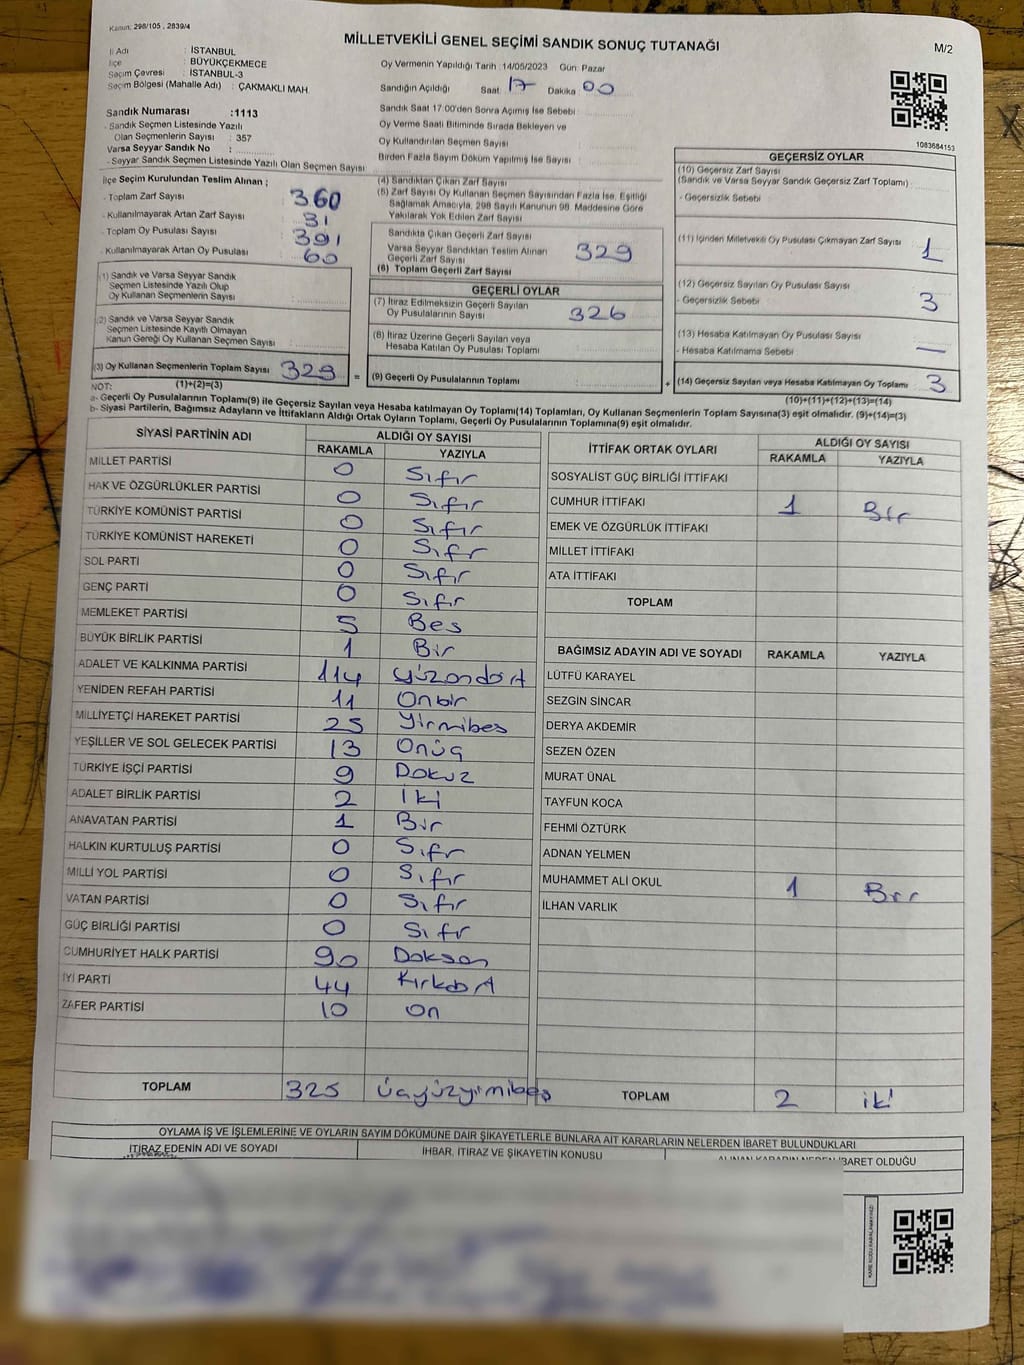 Kanun: 298/105 , 2839/4
MİLLETVEKİLİ GENEL SEÇİMİ SANDIK SONUÇ TUTANAĞI
M/2
İl Adı : İSTANBUL
İlçe : BÜYÜKÇEKMECE
Seçim Çevresi : İSTANBUL-3
Seçim Bölgesi (Mahalle Adı) : ÇAKMAKLI MAH.
Oy Vermenin Yapıldığı Tarih : 14/05/2023 Gün: Pazar
Sandığın Açıldığı Saat 17 Dakika 00
Sandık Saat 17:00'den Sonra Açılmış İse Sebebi
Oy Verme Saati Bitiminde Sırada Bekleyen ve
Oy Kullandırılan Seçmen Sayısı
Birden Fazla Sayım Döküm Yapılmış İse Sayısı
1083684153
Sandık Numarası :1113
- Sandık Seçmen Listesinde Yazılı
Olan Seçmenlerin Sayısı : 357
Varsa Seyyar Sandık No :
- Seyyar Sandık Seçmen Listesinde Yazılı Olan Seçmen Sayısı
İlçe Seçim Kurulundan Teslim Alınan ;
- Toplam Zarf Sayısı : 360
- Kullanılmayarak Artan Zarf Sayısı : 31
- Toplam Oy Pusulası Sayısı : 391
- Kullanılmayarak Artan Oy Pusulası : 60
(1) Sandık ve Varsa Seyyar Sandık
Seçmen Listesinde Yazılı Olup
Oy Kullanan Seçmenlerin Sayısı :
(2) Sandık ve Varsa Seyyar Sandık
Seçmen Listesinde Kayıtlı Olmayan
Kanun Gereği Oy Kullanan Seçmen Sayısı :
(3) Oy Kullanan Seçmenlerin Toplam Sayısı 329
(4) Sandıktan Çıkan Zarf Sayısı
(5) Zarf Sayısı Oy Kullanan Seçmen Sayısından Fazla İse, Eşitliği
Sağlamak Amacıyla, 298 Sayılı Kanunun 98. Maddesine Göre
Yakılarak Yok Edilen Zarf Sayısı
Sandıkta Çıkan Geçerli Zarf Sayısı
Varsa Seyyar Sandıktan Teslim Alınan
Geçerli Zarf Sayısı
(6) Toplam Geçerli Zarf Sayısı 329
GEÇERLİ OYLAR
(7) İtiraz Edilmeksizin Geçerli Sayılan
Oy Pusulalarının Sayısı 326
(8) İtiraz Üzerine Geçerli Sayılan veya
Hesaba Katılan Oy Pusulası Toplamı
= (9) Geçerli Oy Pusulalarının Toplamı
GEÇERSİZ OYLAR
(10) Geçersiz Zarf Sayısı
(Sandık ve Varsa Seyyar Sandık Geçersiz Zarf Toplamı)
- Geçersizlik Sebebi
(11) İçinden Milletvekili Oy Pusulası Çıkmayan Zarf Sayısı 1
(12) Geçersiz Sayılan Oy Pusulası Sayısı
- Geçersizlik Sebebi 3
(13) Hesaba Katılmayan Oy Pusulası Sayısı
- Hesaba Katılmama Sebebi —
+ (14) Geçersiz Sayılan veya Hesaba Katılmayan Oy Toplamı 3
NOT: (1)+(2)=(3)
(10)+(11)+(12)+(13)=(14)
a- Geçerli Oy Pusulalarının Toplamı(9) ile Geçersiz Sayılan veya Hesaba katılmayan Oy Toplamı(14) Toplamları, Oy Kullanan Seçmenlerin Toplam Sayısına(3) eşit olmalıdır. (9)+(14)=(3)
b- Siyasi Partilerin, Bağımsız Adayların ve İttifakların Aldığı Ortak Oyların Toplamı, Geçerli Oy Pusulalarının Toplamına(9) eşit olmalıdır.
SİYASİ PARTİNİN ADI ALDIĞI OY SAYISI
RAKAMLA YAZIYLA
MİLLET PARTİSİ 0 Sıfır
HAK VE ÖZGÜRLÜKLER PARTİSİ 0 Sıfır
TÜRKİYE KOMÜNİST PARTİSİ 0 Sıfır
TÜRKİYE KOMÜNİST HAREKETİ 0 Sıfr
SOL PARTİ 0 Sıfır
GENÇ PARTİ 0 Sıfır
MEMLEKET PARTİSİ 5 Bes
BÜYÜK BİRLİK PARTİSİ 1 Bir
ADALET VE KALKINMA PARTİSİ 114 yüzondört
YENİDEN REFAH PARTİSİ 11 Onbir
MİLLİYETÇİ HAREKET PARTİSİ 25 Yirmibes
YEŞİLLER VE SOL GELECEK PARTİSİ 13 Onüç
TÜRKİYE İŞÇİ PARTİSİ 9 Dokuz
ADALET BİRLİK PARTİSİ 2 İki
ANAVATAN PARTİSİ 1 Bir
HALKIN KURTULUŞ PARTİSİ 0 Sıfr
MİLLİ YOL PARTİSİ 0 Sıfır
VATAN PARTİSİ 0 Sıfr
GÜÇ BİRLİĞİ PARTİSİ 0 Sıfr
CUMHURİYET HALK PARTİSİ 90 Doksan
İYİ PARTİ 44 Kırkdört
ZAFER PARTİSİ 10 On
TOPLAM 325 üçyüzyirmibeş
İTTİFAK ORTAK OYLARI ALDIĞI OY SAYISI
RAKAMLA YAZIYLA
SOSYALİST GÜÇ BİRLİĞİ İTTİFAKI
CUMHUR İTTİFAKI 1 Bir
EMEK VE ÖZGÜRLÜK İTTİFAKI
MİLLET İTTİFAKI
ATA İTTİFAKI
TOPLAM
BAĞIMSIZ ADAYIN ADI VE SOYADI RAKAMLA YAZIYLA
LÜTFÜ KARAYEL
SEZGİN SİNCAR
DERYA AKDEMİR
SEZEN ÖZEN
MURAT ÜNAL
TAYFUN KOCA
FEHMİ ÖZTÜRK
ADNAN YELMEN
MUHAMMET ALİ OKUL 1 Bir
İLHAN VARLIK
TOPLAM 2 iki
OYLAMA İŞ VE İŞLEMLERİNE VE OYLARIN SAYIM DÖKÜMÜNE DAİR ŞİKAYETLERLE BUNLARA AİT KARARLARIN NELERDEN İBARET BULUNDUKLARI
İTİRAZ EDENİN ADI VE SOYADI İHBAR, İTİRAZ VE ŞİKAYETİN KONUSU ALINAN KARARIN NEDEN İBARET OLDUĞU